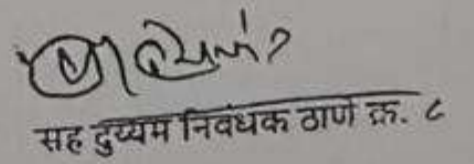 सह दुय्यम निबंधक ठाणे क्र. ८